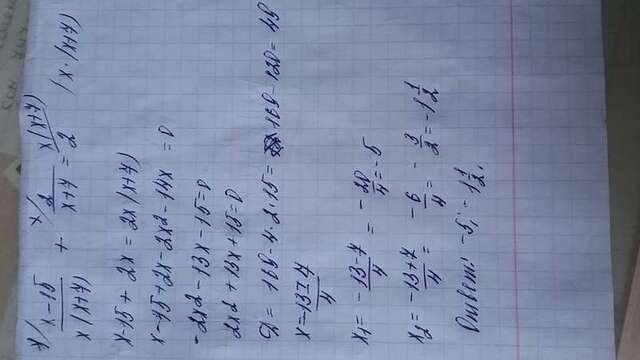 x-15/x(x+7) + x/ 2/x+7 = x(x+7)/ 2 | x·(x+7)
x-15 + 2x = 2x(x+7)
x-15+2x-2x²-14x = 0
-2x²-13x-15=0
2x²+13x+15=0
D = 169-4·2·15= 169-120=49
x=-13±7/4
x₁= -13-7/4 = -20/4=-5
x₂= -13+7/4= -6/4= -3/2=-1 1/2
Ответ: -5; -1 1/2.